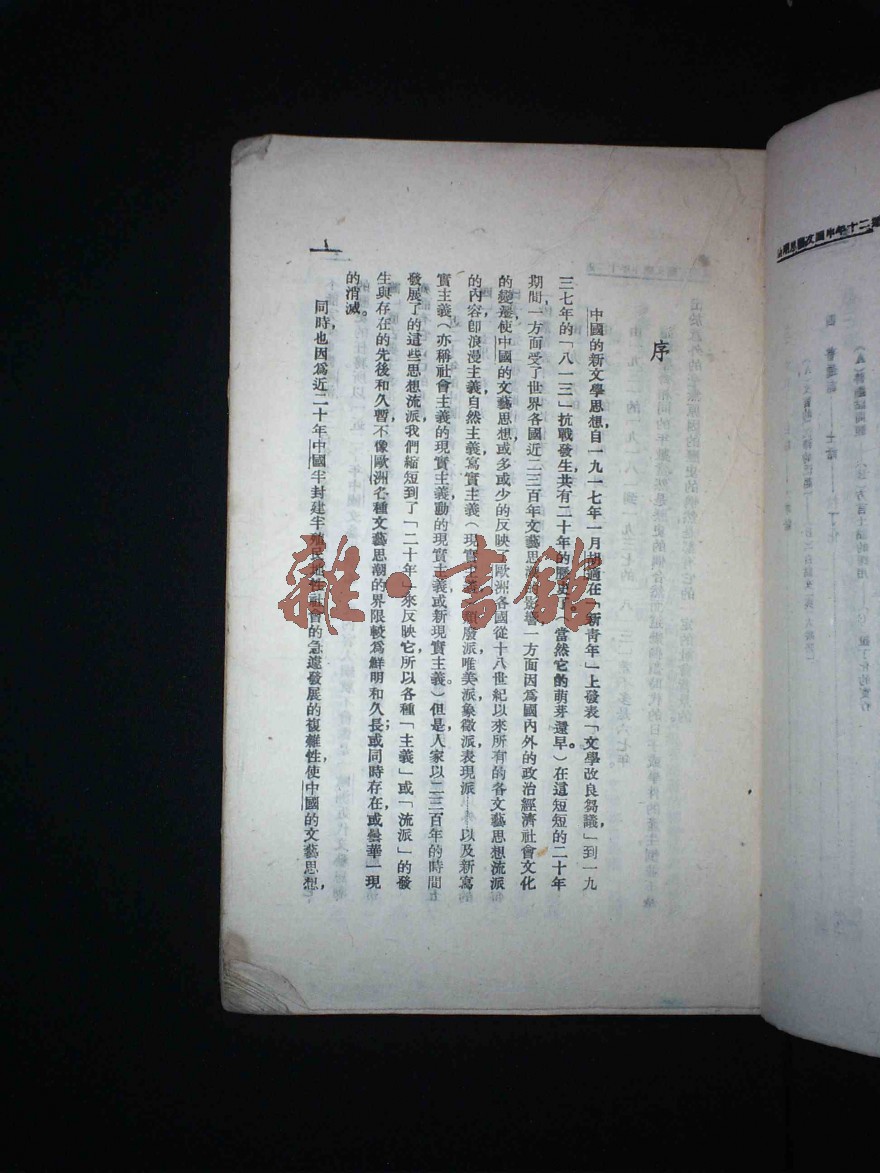 序
中國的新文學思想，自一九一七年一月胡適在「新青年」上發表「文學改良芻議」到一九
三七年的「八一三」抗戰發生共有二十年的歷史了。當然它的萌芽還早。）在這短短的二十年
期間一方面受了世界各國近二三百年文藝思潮的影響一方面因爲國內外的政治經濟社會文化
的變遷使中國的文藝思想或多或少的反映了歐洲各國從十八世紀以來所有的各文藝思想流派
的內容卽浪漫主義，自然主義，寫實主義（現實主義），頹廢派，唯美派，象徵派，表現派……以及新寫
實主義（亦稱社會主義的現實主義，動的現實主義或新現實主義）。但是人家以二三百年的時間
發展了的這些思想流派我們縮短到了「二十年」來反映它所以各種「主義」或「流派」的發
生與存在的先後和久暫不像歐洲各種文藝思潮的界限較爲鮮明和久長；或同時存在，或曇華一現
的消滅。
同時也因爲近二十年中國半封建半殖民地性社會的急遽發展的複雜性，使中國的文藝思想，
一
雜·書館
二十年中國文藝思潮